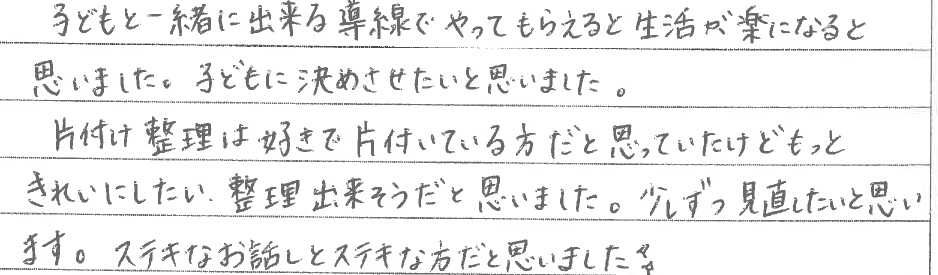 子どもと一緒に出来る導線でやってもらえると生活が楽になると
思いました。子どもに決めさせたいと思いました。
片付け整理は好きで片付いている方だと思っていたけどもっと
きれいにしたい、整理出来そうだと思いました。少しずつ見直したいと思い
ます。ステキなお話しとステキな方だと思いました